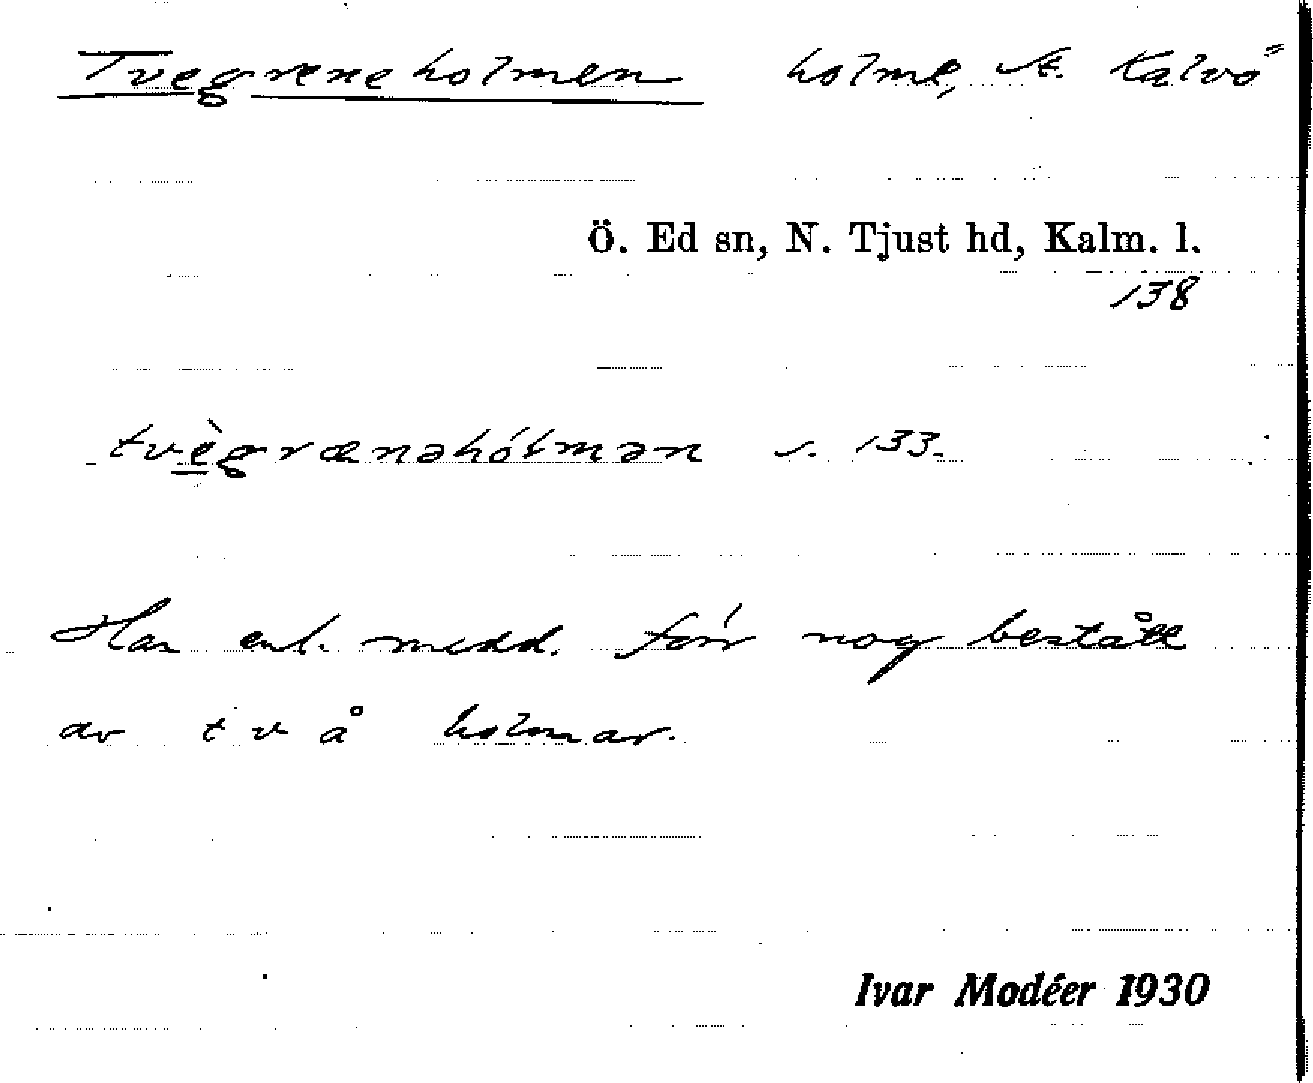 Tvegreneholmen holme, St. Kalvö
Ö. Ed sn, N. Tjust hd, Kalm. l.
138
tvègrænəhólmən s. 133.
Har enl. medd. förr nog bestått
av två holmar.
Ivar Modéer 1930